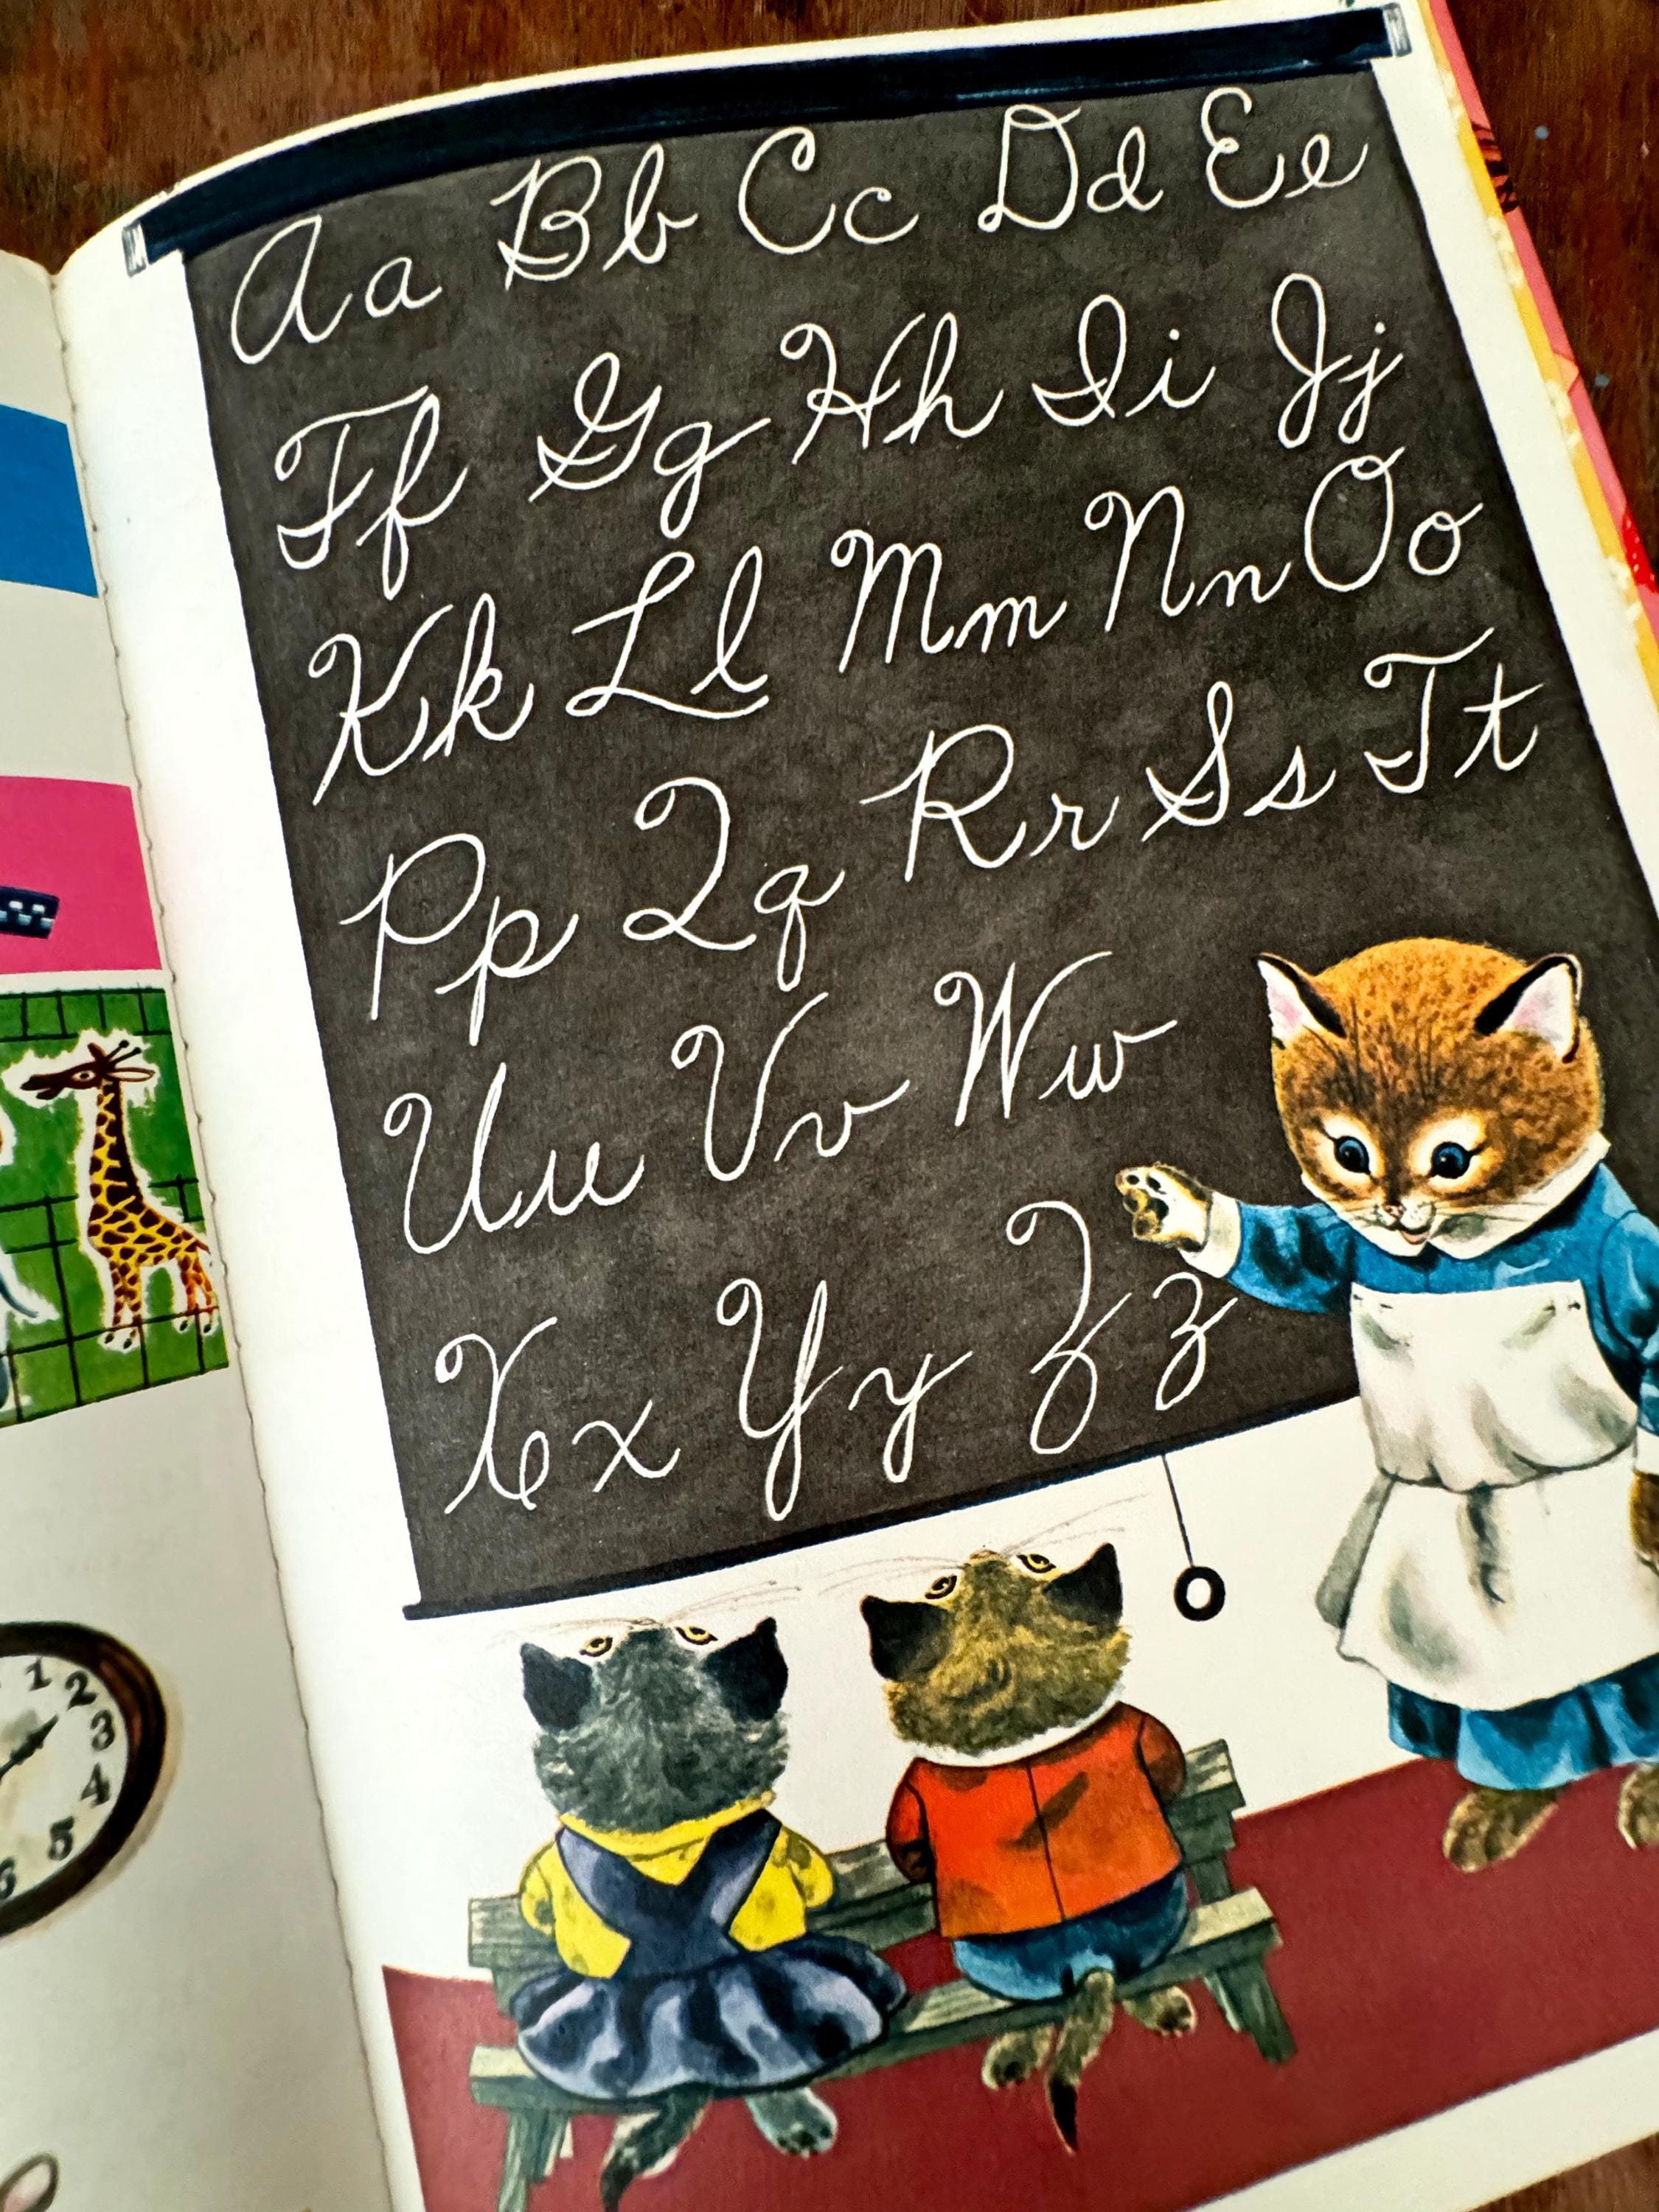 Aa Bb Cc Dd Ee
Ff Gg Hh Ii Jj
Kk Ll Mm Nn Oo
Pp Qq Rr Ss Tt
Uu Vv Ww
Xx Yy Zz
1
2
3
4
5
6